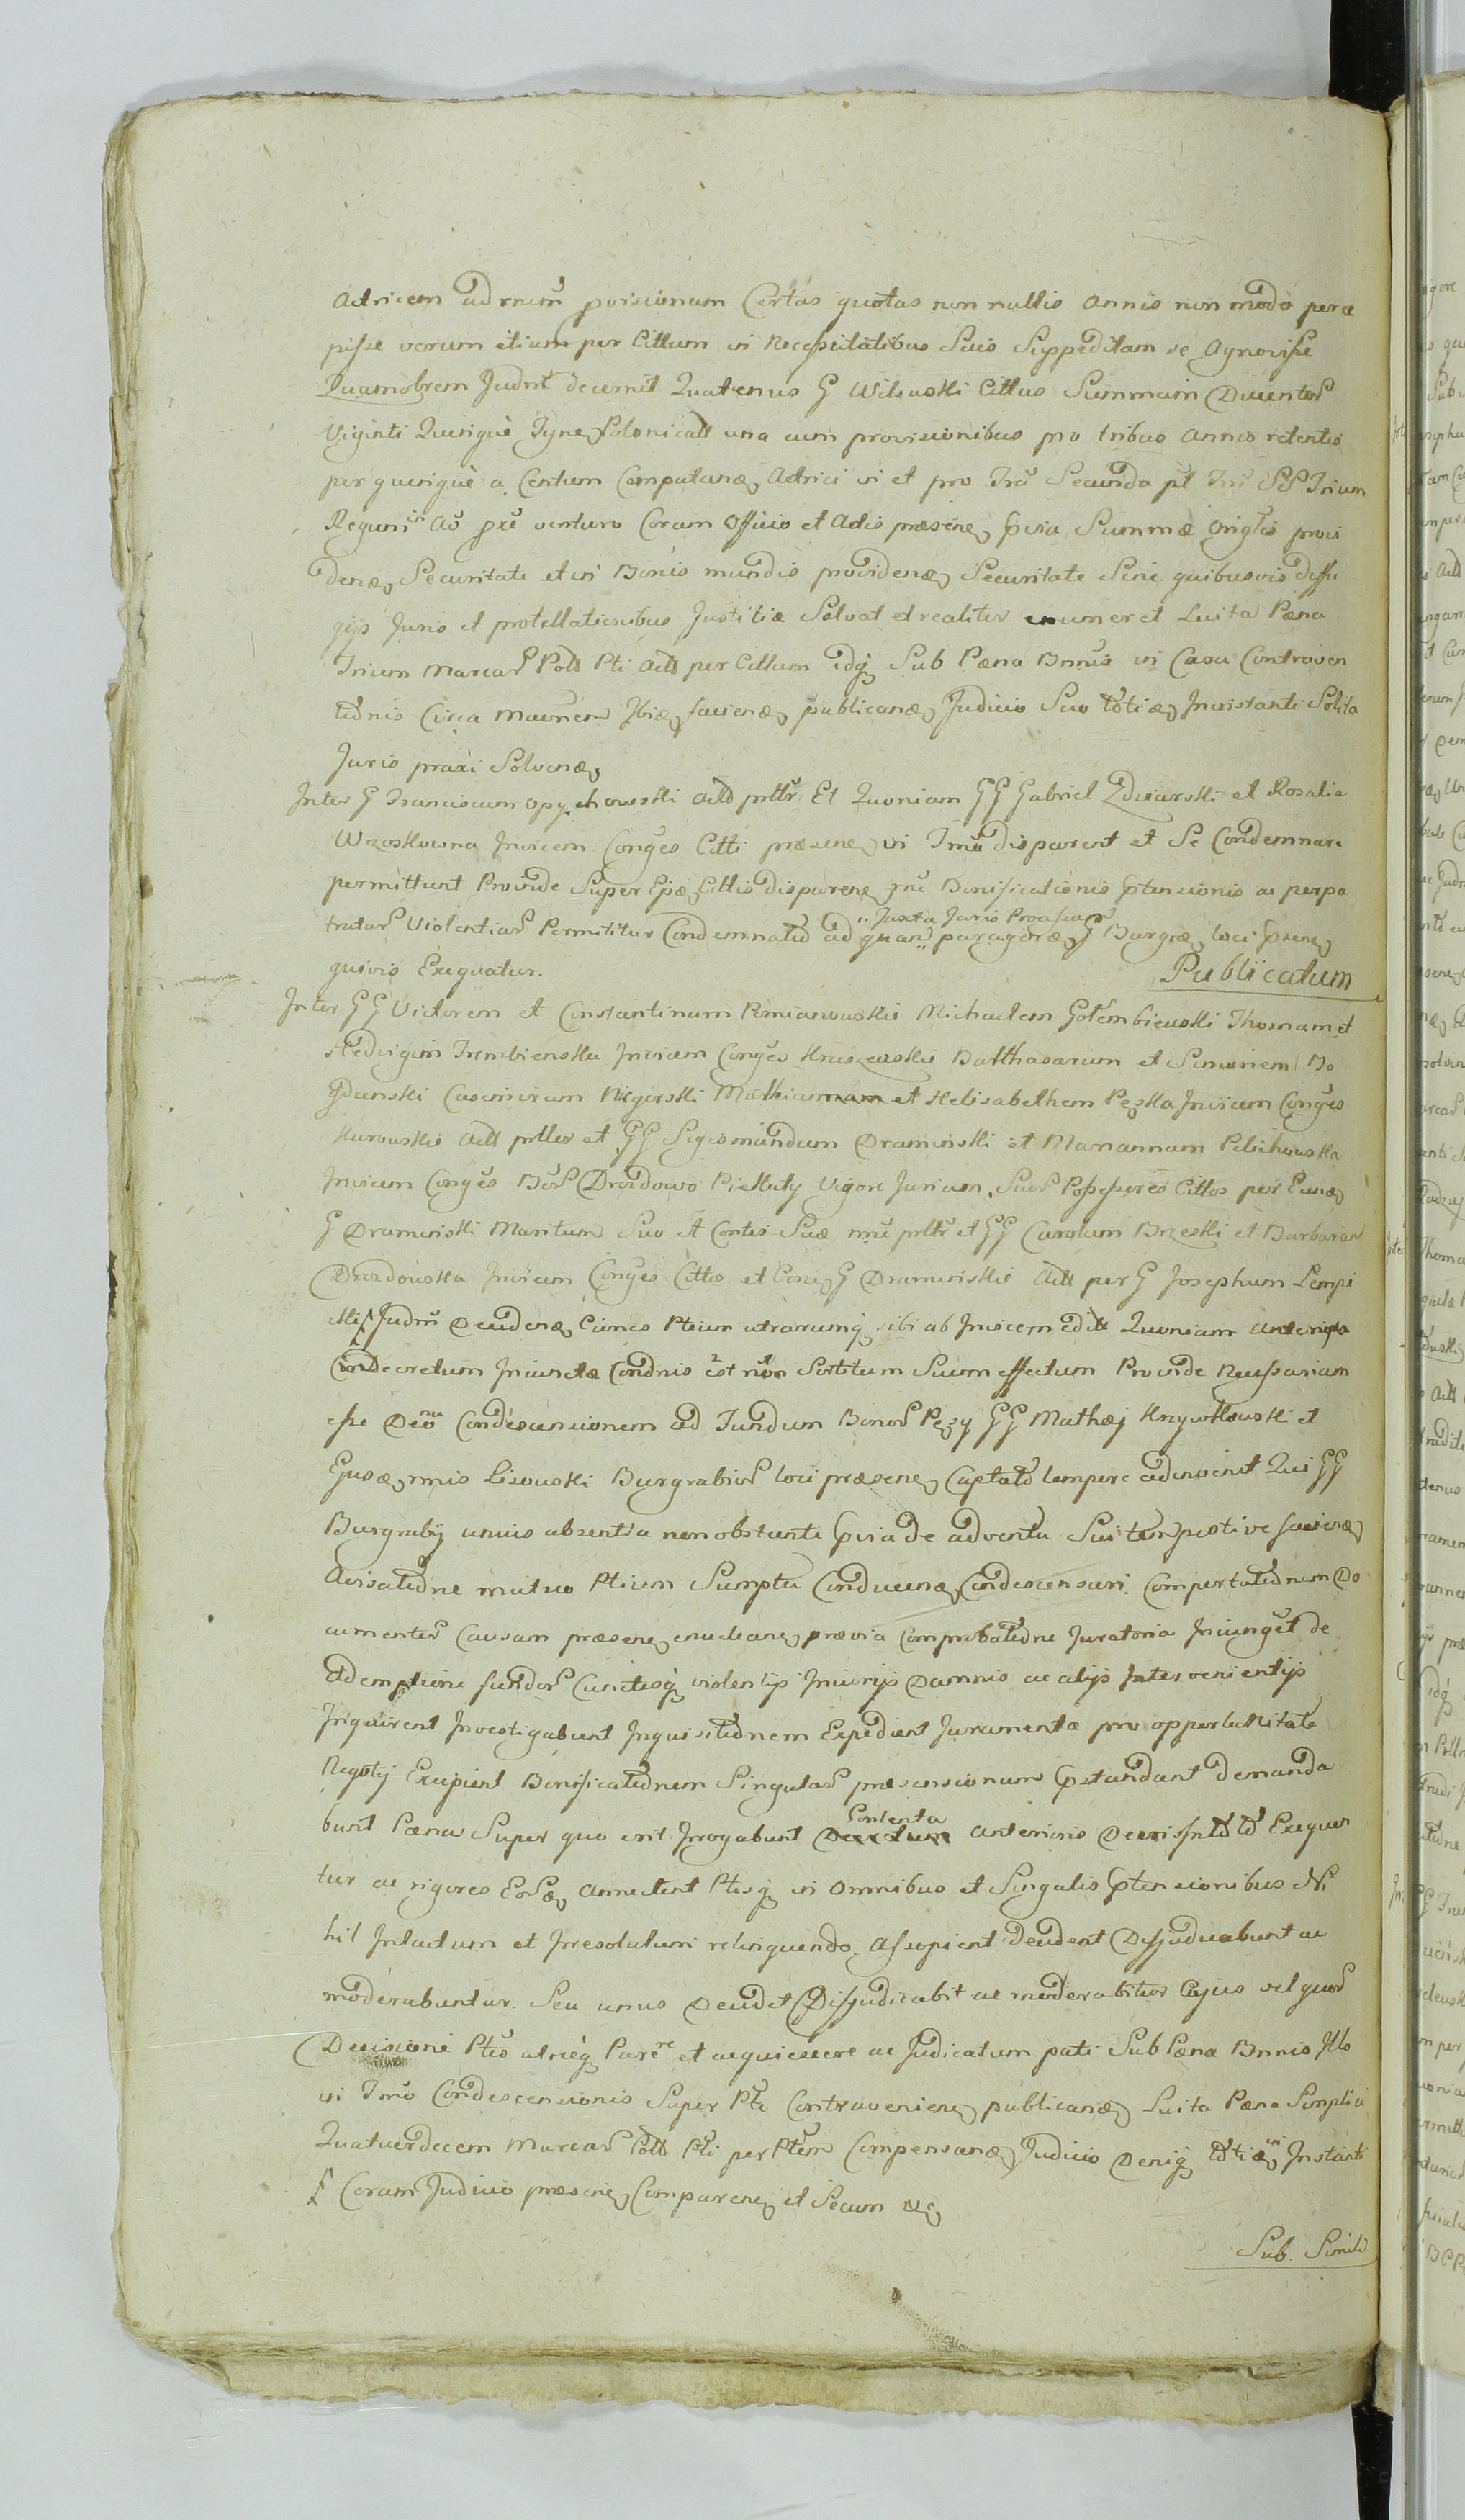 Actricem ad rnem provisionum Certas quotas non nullis Annis non modo perce
pisse verum etiam per Cittum in Necessitatibus Suis Suppeditam se Agnovisse
Quamobrem Judm decernit Quatenus G Wilewski Cittus Summam Ducentos
Viginti Quinque Tynf Polonicall una cum provisionibus pro tribus Annis retentis
per quinque a Centum Computanas Actrici in et pro Secunda pt SS Trium
Regum in Ao venturo Coram Officio et Actis præsen Summæ provi
denas Securitate et in Bonis mundis providenas Securitate Sine quibusvis diffu
gijs Juris et protellationibus Justitiæ Solvat et realiter enumeret Luita Pæna
Trium Marcar Poll Pti Act per Cittum idq Sub Pæna Bnnis in Casu Contraven
tionis Circa facienas publicanas Judicio Suo Inistanti Solita
Juris praxi Solvenas
Inter G Franciscum Opychowski Act pttr Et Quoniam GG Gabriel Zdziarski et Rosalia
Wzoskowna Invicem Conges Citti præsen in Tmo disparent et Se Condemnari
permittunt Proinde Super Cittis disparen Bonificationis ptensionis ac perpe
tratar Violentiar Permititur Condemnatio ad quam Juxta Juris Processum paragenas G Burgræ loci psen
quivis Exequatur.
Publicatum
Inter GG Victorem et Constantinum Pomianowskie Michaelem Gołembiewski Thomam et
Hedvigim Trembienska Invicem Conges Kraszewskie Balthasarum et Simonem Bo
gdanski Casimirum Nieginski Mathiam et Helisabethem Pęska Invicem Conges
Kurowskie Act pttes et GG Sigismundum Draminski et Mariannam Pilichowska
Invicem Conges Bor Drozdowo Piekuty Vigore Jurium Suor Possessores Cittos per Eun
G Draminski Maritum Suo et Contis Suæ nne pttr et GG Carolum Brzeski et Barbaram
Drozdowska Invicem Conges Cittos et G Draminskie Act per G Josephum Lempi
cki Judm Decidenas Ptium utrarumq sibi ab Invicem edit Quoniam
Indecretum Iniunctæ Condnis est non Sortitum Suum effectum Proinde Necessariam
esse Deo Condescensionem ad Fundum Bonor Pęzy GG Mathæj Krzywkowski et
Lisowski Burgrabior loci præsen Captato tempore adinvenit Qui GG
Burgrabij unius absentia non obstante pvia de adventu Sui tempestive facienas
Avisatione mutuo Ptium Sumptu Conducenas Condescensuri Comportationem Do
cumentor Causam præsen enuclean prævia Comprobatione Juratoria Iniunget de
Ademptione fundor Cunctisq violentijs Iniurijs Damnis ac alijs Intervenientijs
Inquirent Investigabunt Inquisitionem Expedient Juramenta pro oppertunitate
Negotij Excipient Bonificationem Singular prætensionum pstandant Demanda
bunt Pænas Super quo erit Irrogabunt Contenta Anterioris Exequen
tur ac rigores annectent Ptesq in Omnibus et Singulis ptensionibus Ni
hil Intactum et Irresolutum relinquendo Assopient Decident Disjudicabunt ac
moderabuntur. Seu unus Decidet Disjudicabit ac moderabitur Cujus vel quor
Decisioni Ptes utrieq Parere et acquiescere ac Judicatum pati Sub Pæna Bnnis Illo
in Tmo Condescensionis Super Pte Contravenien publicanas Luita Pæna Simplici
Quatuordecem Marcar Poll Pti per Ptem Compensanas Judicio Deniq Instanti
Coram Judicio præsen Comparen et Secum
Sub. Simili